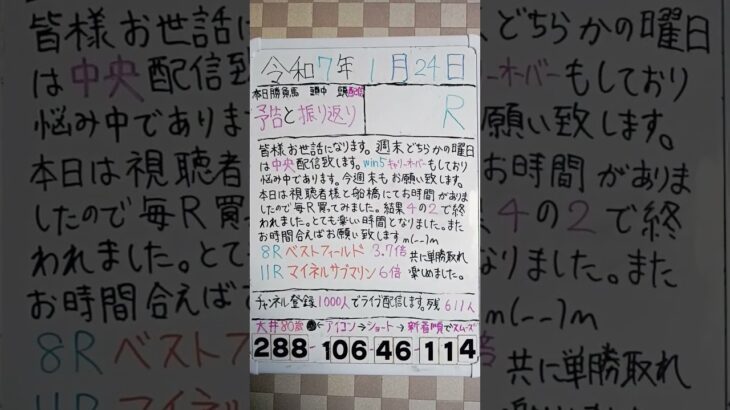 令和7年1月24日
本日勝負馬 頭中 頭配信
予告と振り返り
R
皆様お世話になります。週末どちらかの曜日
は中央配信致します。win5キャリーオーバーもしており
悩み中であります。今週末もお願い致します。
本日は視聴者様と船橋にてお時間がありま
したので毎R買ってみました。結果4の2で終
われました。とても楽しい時間となりました。また
お時間合えばお願い致しますm(--)m
8Rベストフィールド 3.7倍 共に単勝取れ
11Rマイネルサブマリン6倍 楽しめました。
チャンネル登録1000人でライブ配信します。残611人
大井80歳 ←アイコン→ショート→新着順でスムーズ
288-106-46-114